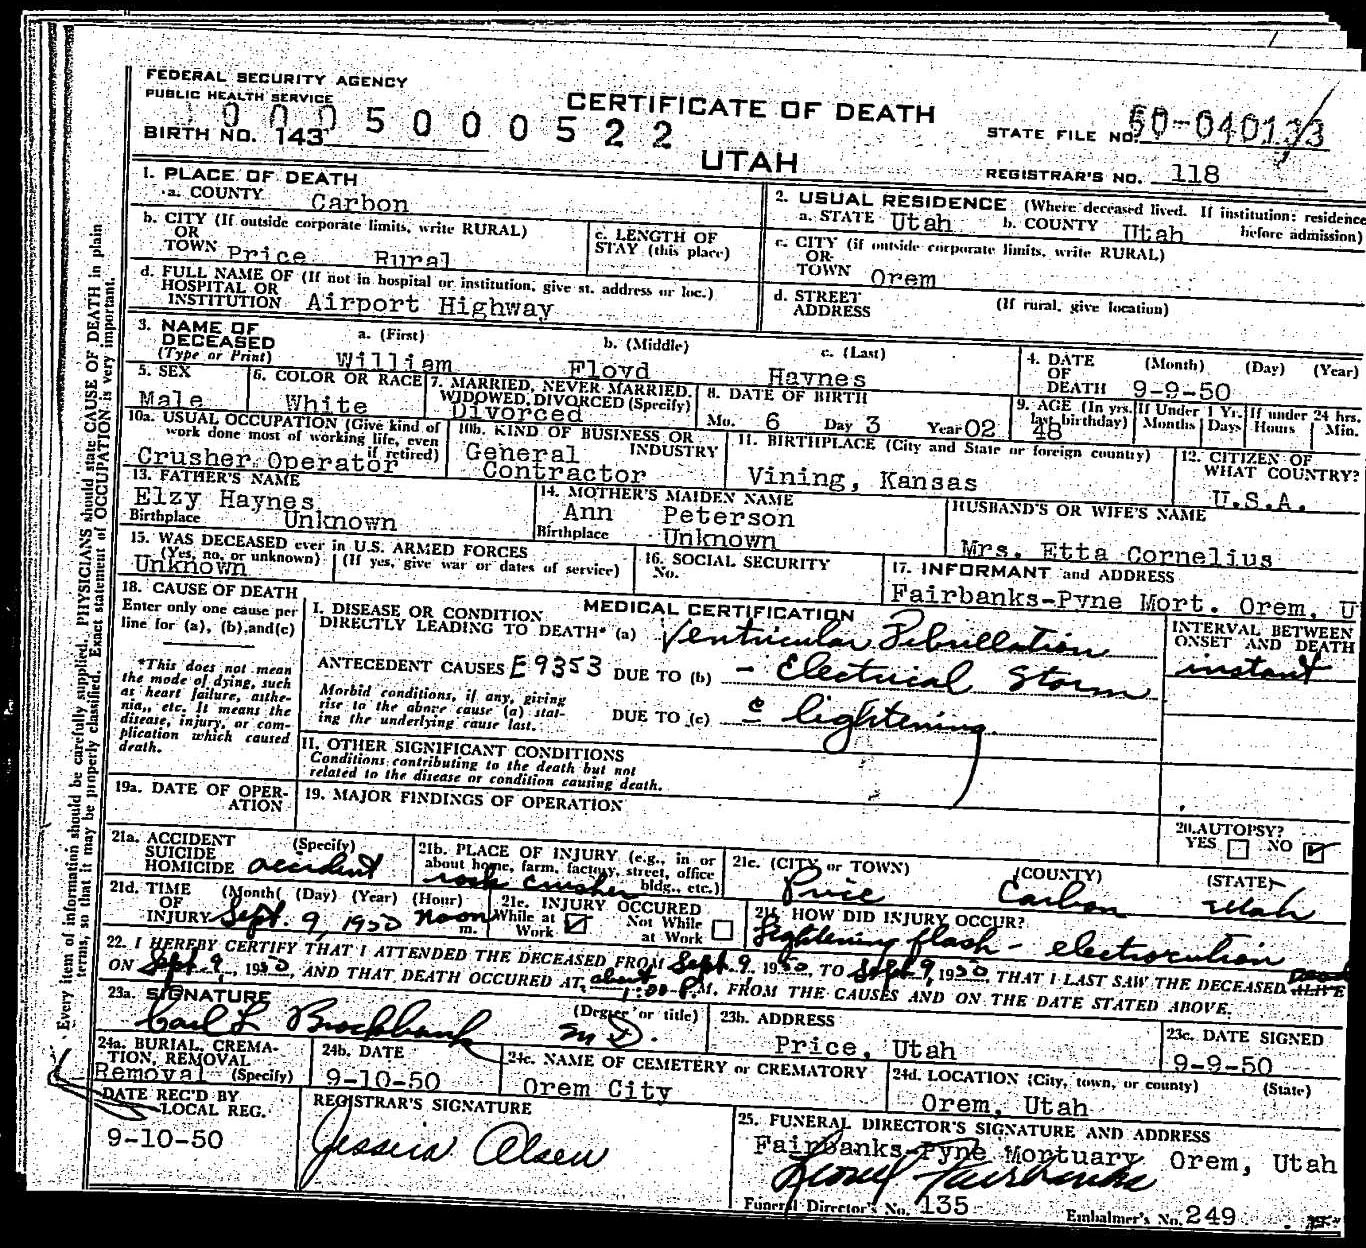 FEDERAL SECURITY AGENCY
PUBLIC HEALTH SERVICE
CERTIFICATE OF DEATH
UTAH
0005000522
BIRTH NO. 143
STATE FILE NO. 50-040133
REGISTRAR'S NO. 118
1. PLACE OF DEATH
a. COUNTY Carbon
b. CITY (If outside corporate limits, write RURAL)
OR
TOWN Price Rural
c. LENGTH OF
STAY (this place)
d. FULL NAME OF (If not in hospital or institution, give st. address or loc.)
HOSPITAL OR
INSTITUTION Airport Highway
2. USUAL RESIDENCE (Where deceased lived. If institution: residence
before admission)
a. STATE Utah b. COUNTY Utah
c. CITY (if outside corporate limits, write RURAL)
OR
TOWN Orem
d. STREET (If rural, give location)
ADDRESS
3. NAME OF
DECEASED
(Type or Print)
a. (First) b. (Middle) c. (Last)
William Floyd Haynes
4. DATE (Month) (Day) (Year)
OF
DEATH 9-9-50
5. SEX
Male
6. COLOR OR RACE
White
7. MARRIED, NEVER MARRIED,
WIDOWED, DIVORCED (Specify)
Divorced
8. DATE OF BIRTH
Mo. 6 Day 3 Year 02
9. AGE (In yrs. last birthday)
48
If Under 1 Yr.
Months Days
If under 24 hrs.
Hours Min.
10a. USUAL OCCUPATION (Give kind of
work done most of working life, even
if retired)
Crusher Operator
10b. KIND OF BUSINESS OR
INDUSTRY
General
Contractor
11. BIRTHPLACE (City and State or foreign country)
Vining, Kansas
12. CITIZEN OF
WHAT COUNTRY?
U.S.A.
13. FATHER'S NAME
Elzy Haynes
Birthplace Unknown
14. MOTHER'S MAIDEN NAME
Ann Peterson
Birthplace Unknown
HUSBAND'S OR WIFE'S NAME
Mrs. Etta Cornelius
15. WAS DECEASED ever in U.S. ARMED FORCES
(Yes, no, or unknown) (If yes, give war or dates of service)
Unknown
16. SOCIAL SECURITY
No.
17. INFORMANT and ADDRESS
Fairbanks-Pyne Mort. Orem, U
18. CAUSE OF DEATH
Enter only one cause per
line for (a), (b), and (c)
*This does not mean
the mode of dying, such
as heart failure, asthe-
nia, etc. It means the
disease, injury, or com-
plication which caused
death.
MEDICAL CERTIFICATION
I. DISEASE OR CONDITION
DIRECTLY LEADING TO DEATH* (a) Ventricular Fibrillation
ANTECEDENT CAUSES E9353 DUE TO (b) - Electrical Storm
Morbid conditions, if any, giving
rise to the above cause (a) stat-
ing the underlying cause last.
DUE TO (c) c̄ lightening
INTERVAL BETWEEN
ONSET AND DEATH
instant
II. OTHER SIGNIFICANT CONDITIONS
Conditions contributing to the death but not
related to the disease or condition causing death.
19a. DATE OF OPER-
ATION
19. MAJOR FINDINGS OF OPERATION
20. AUTOPSY?
YES NO
21a. ACCIDENT (Specify)
SUICIDE
HOMICIDE accident
21b. PLACE OF INJURY (e.g., in or
about home, farm, factory, street, office
bldg., etc.)
rock crusher
21c. (CITY or TOWN) (COUNTY) (STATE)
Price Carbon Utah
21d. TIME (Month) (Day) (Year) (Hour)
OF
INJURY Sept. 9, 1950 noon m.
21e. INJURY OCCURED
While at Work
Not While at Work
21f. HOW DID INJURY OCCUR?
Lightening flash - electrocution
22. I HEREBY CERTIFY THAT I ATTENDED THE DECEASED FROM Sept. 9, 1950, TO Sept. 9, 1950, THAT I LAST SAW THE DECEASED ALIVE Dead
ON Sept. 9, 1950, AND THAT DEATH OCCURED AT about 1:00 P.M. FROM THE CAUSES AND ON THE DATE STATED ABOVE.
23a. SIGNATURE (Degree or title)
Carl L Brockbank M D.
23b. ADDRESS
Price, Utah
23c. DATE SIGNED
9-9-50
24a. BURIAL, CREMA-
TION, REMOVAL
Removal (Specify)
24b. DATE
9-10-50
24c. NAME OF CEMETERY or CREMATORY
Orem City
24d. LOCATION (City, town, or county) (State)
Orem, Utah
DATE REC'D BY
LOCAL REG.
9-10-50
REGISTRAR'S SIGNATURE
Jessica Olsen
25. FUNERAL DIRECTOR'S SIGNATURE AND ADDRESS
Fairbanks-Pyne Mortuary Orem, Utah
Lionel Fairbanks
Funeral Director's No. 135 Embalmer's No. 249
Every item of information should be carefully supplied. PHYSICIANS should state CAUSE OF DEATH in plain
terms, so that it may be properly classified. Exact statement of OCCUPATION is very important.